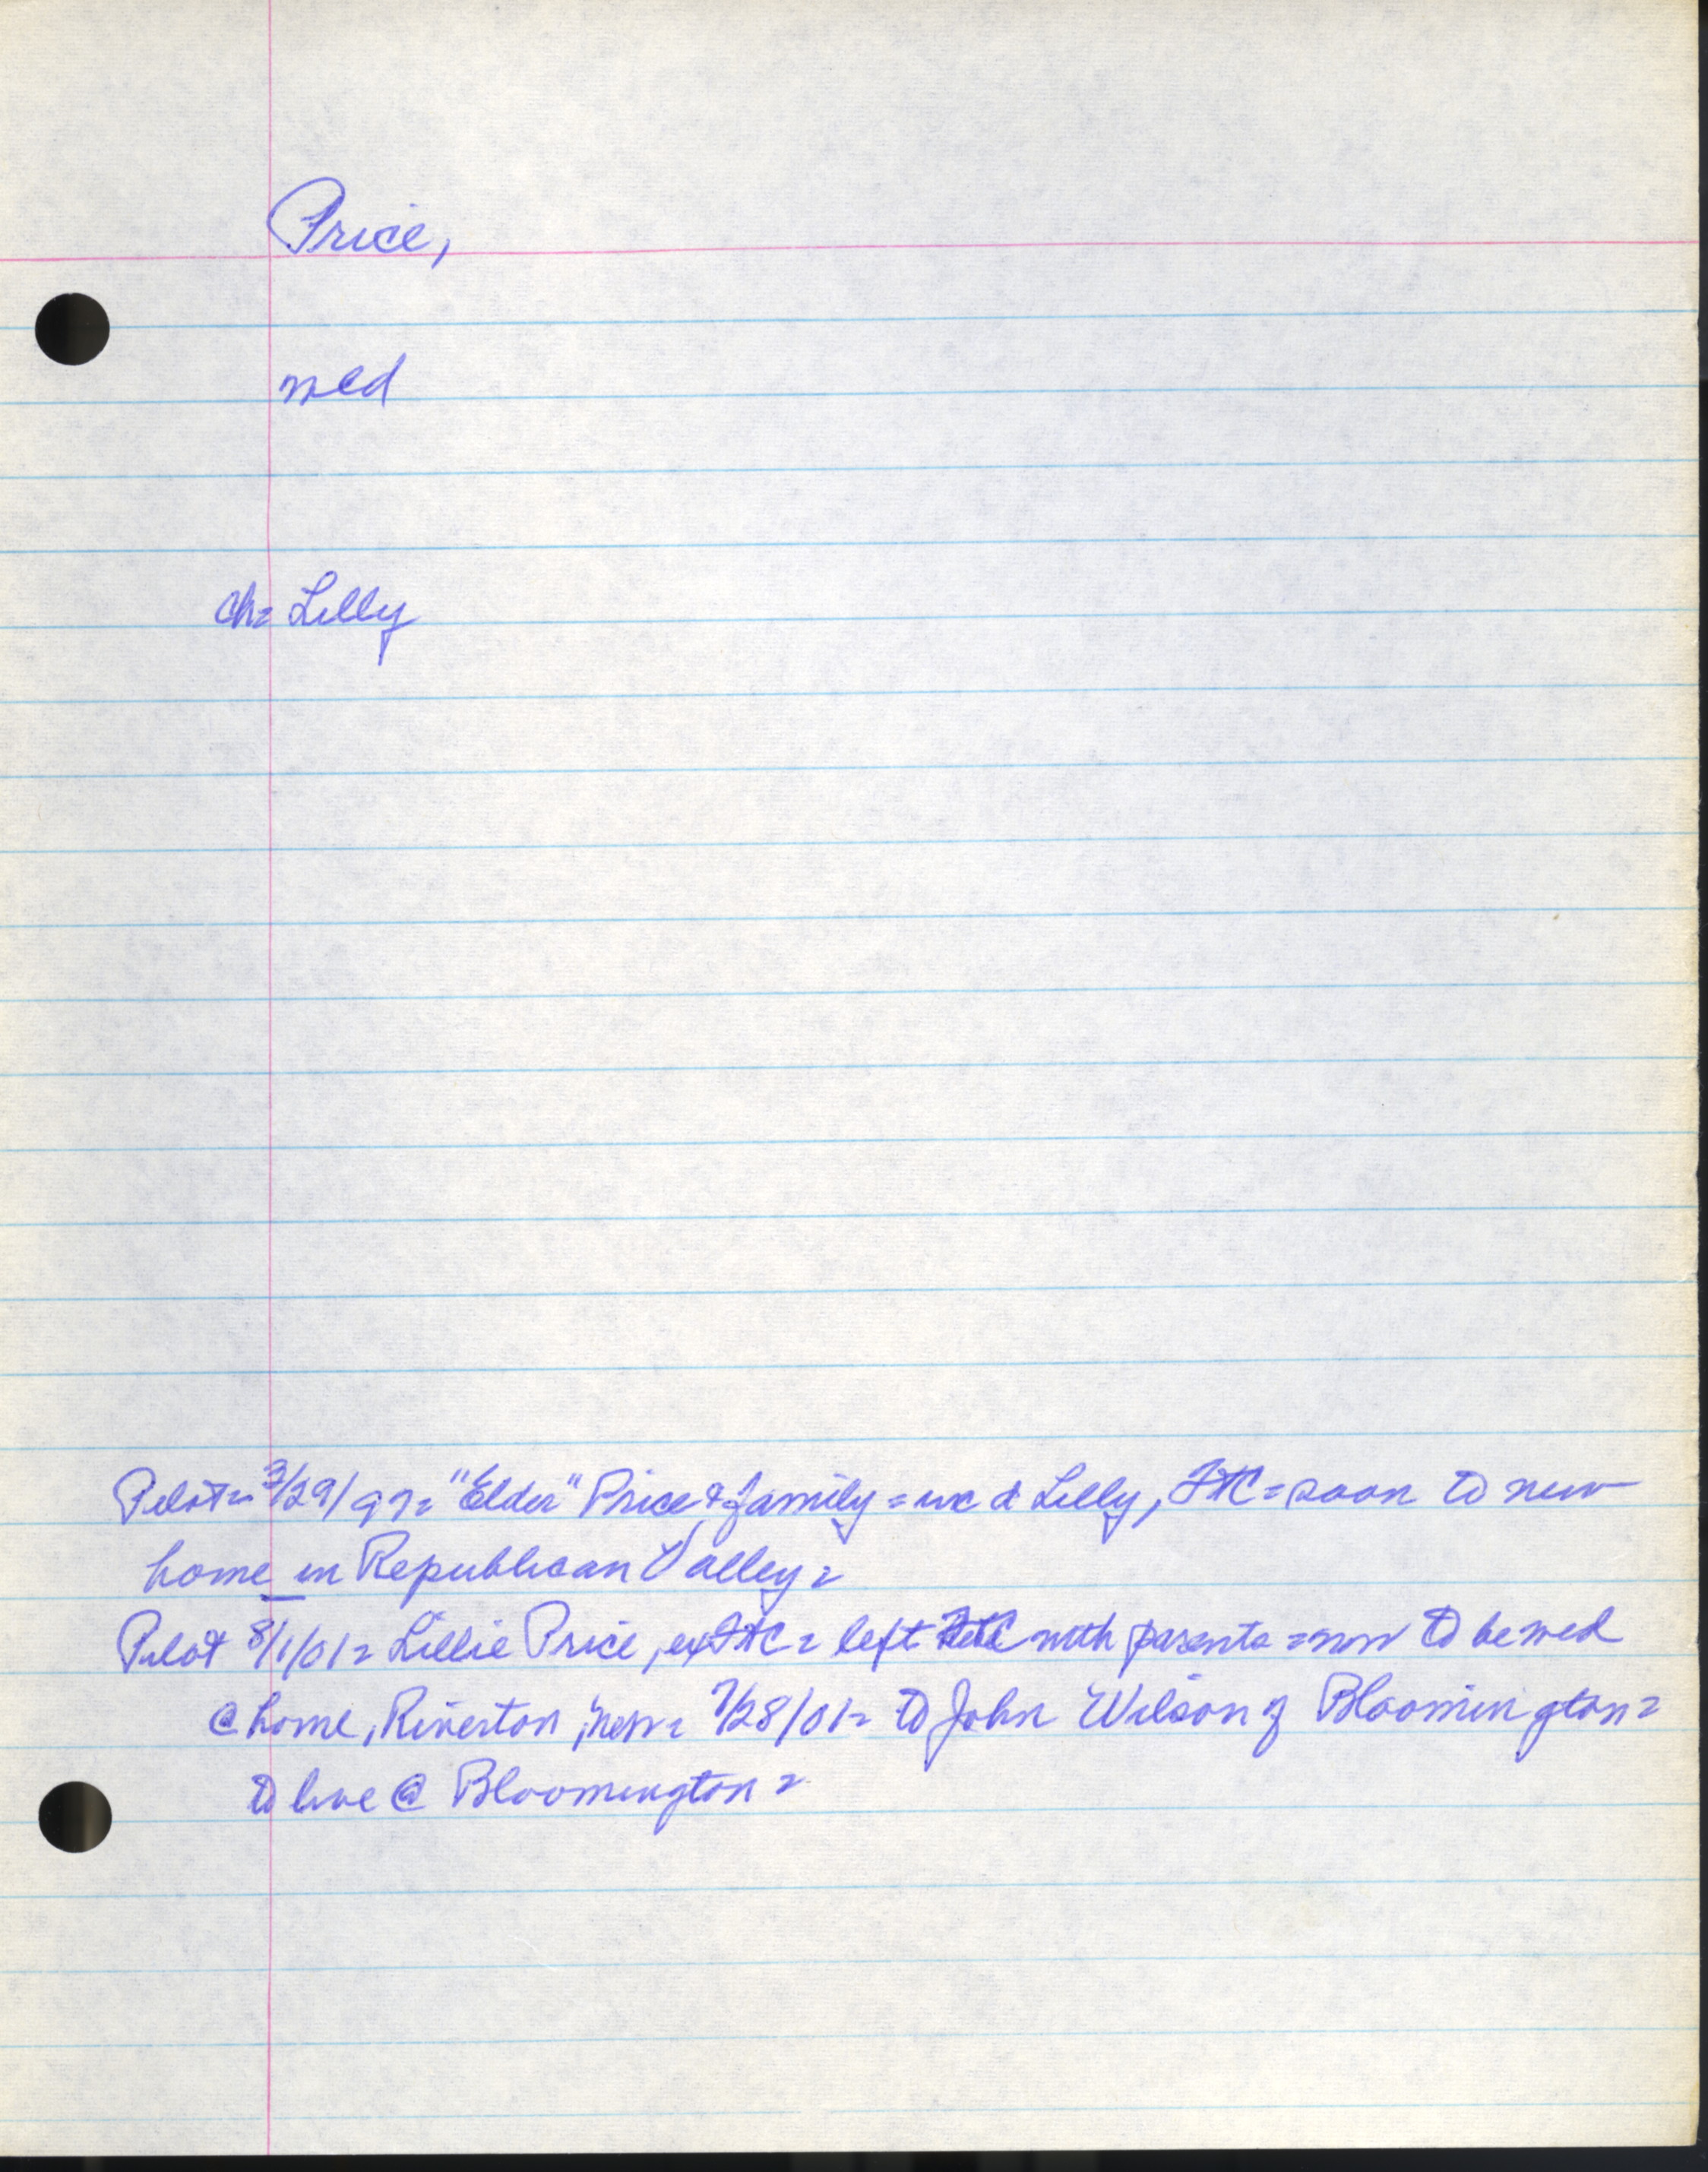 Price,
med
ch= Lilly
Pilot= 3/29/97= "Elder" Price & family = inc d Lilly, FtC = soon to new
home in Republican Valley =
Pilot 8/1/01= Lillie Price, ex FtC = left FtC with parents = now to be wed
@ home, Riverton, Neb= 7/28/01= to John Wilson of Bloomington =
to live @ Bloomington =